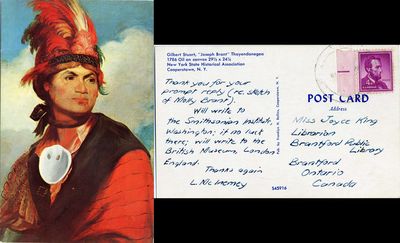 Gilbert Stuart, "Joseph Brant" Thayendanegea
1786 Oil on canvas 29½ x 24½
New York State Historical Association
Cooperstown, N. Y.
Thank you for your
prompt reply (re. sketch
of Molly Brant).
Will write to
the Smithsonian Institute,
Washington; if no luck
there; will write to the
British Museum, London
England.
Thanks again
L. McInerney
S45916
POST CARD
Address
Miss Joyce King
Librarian
Brantford Public
Library
Brantford
Ontario
Canada